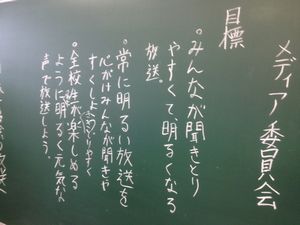 メディア委員会
目標
。みんなが聞きとり
やすくて、明るくなる
放送。
。常に明るい放送を
心がけみんなが聞きや
すくしよう。
。全校が楽しめる
ように明るく元気な
声で放送しよう。